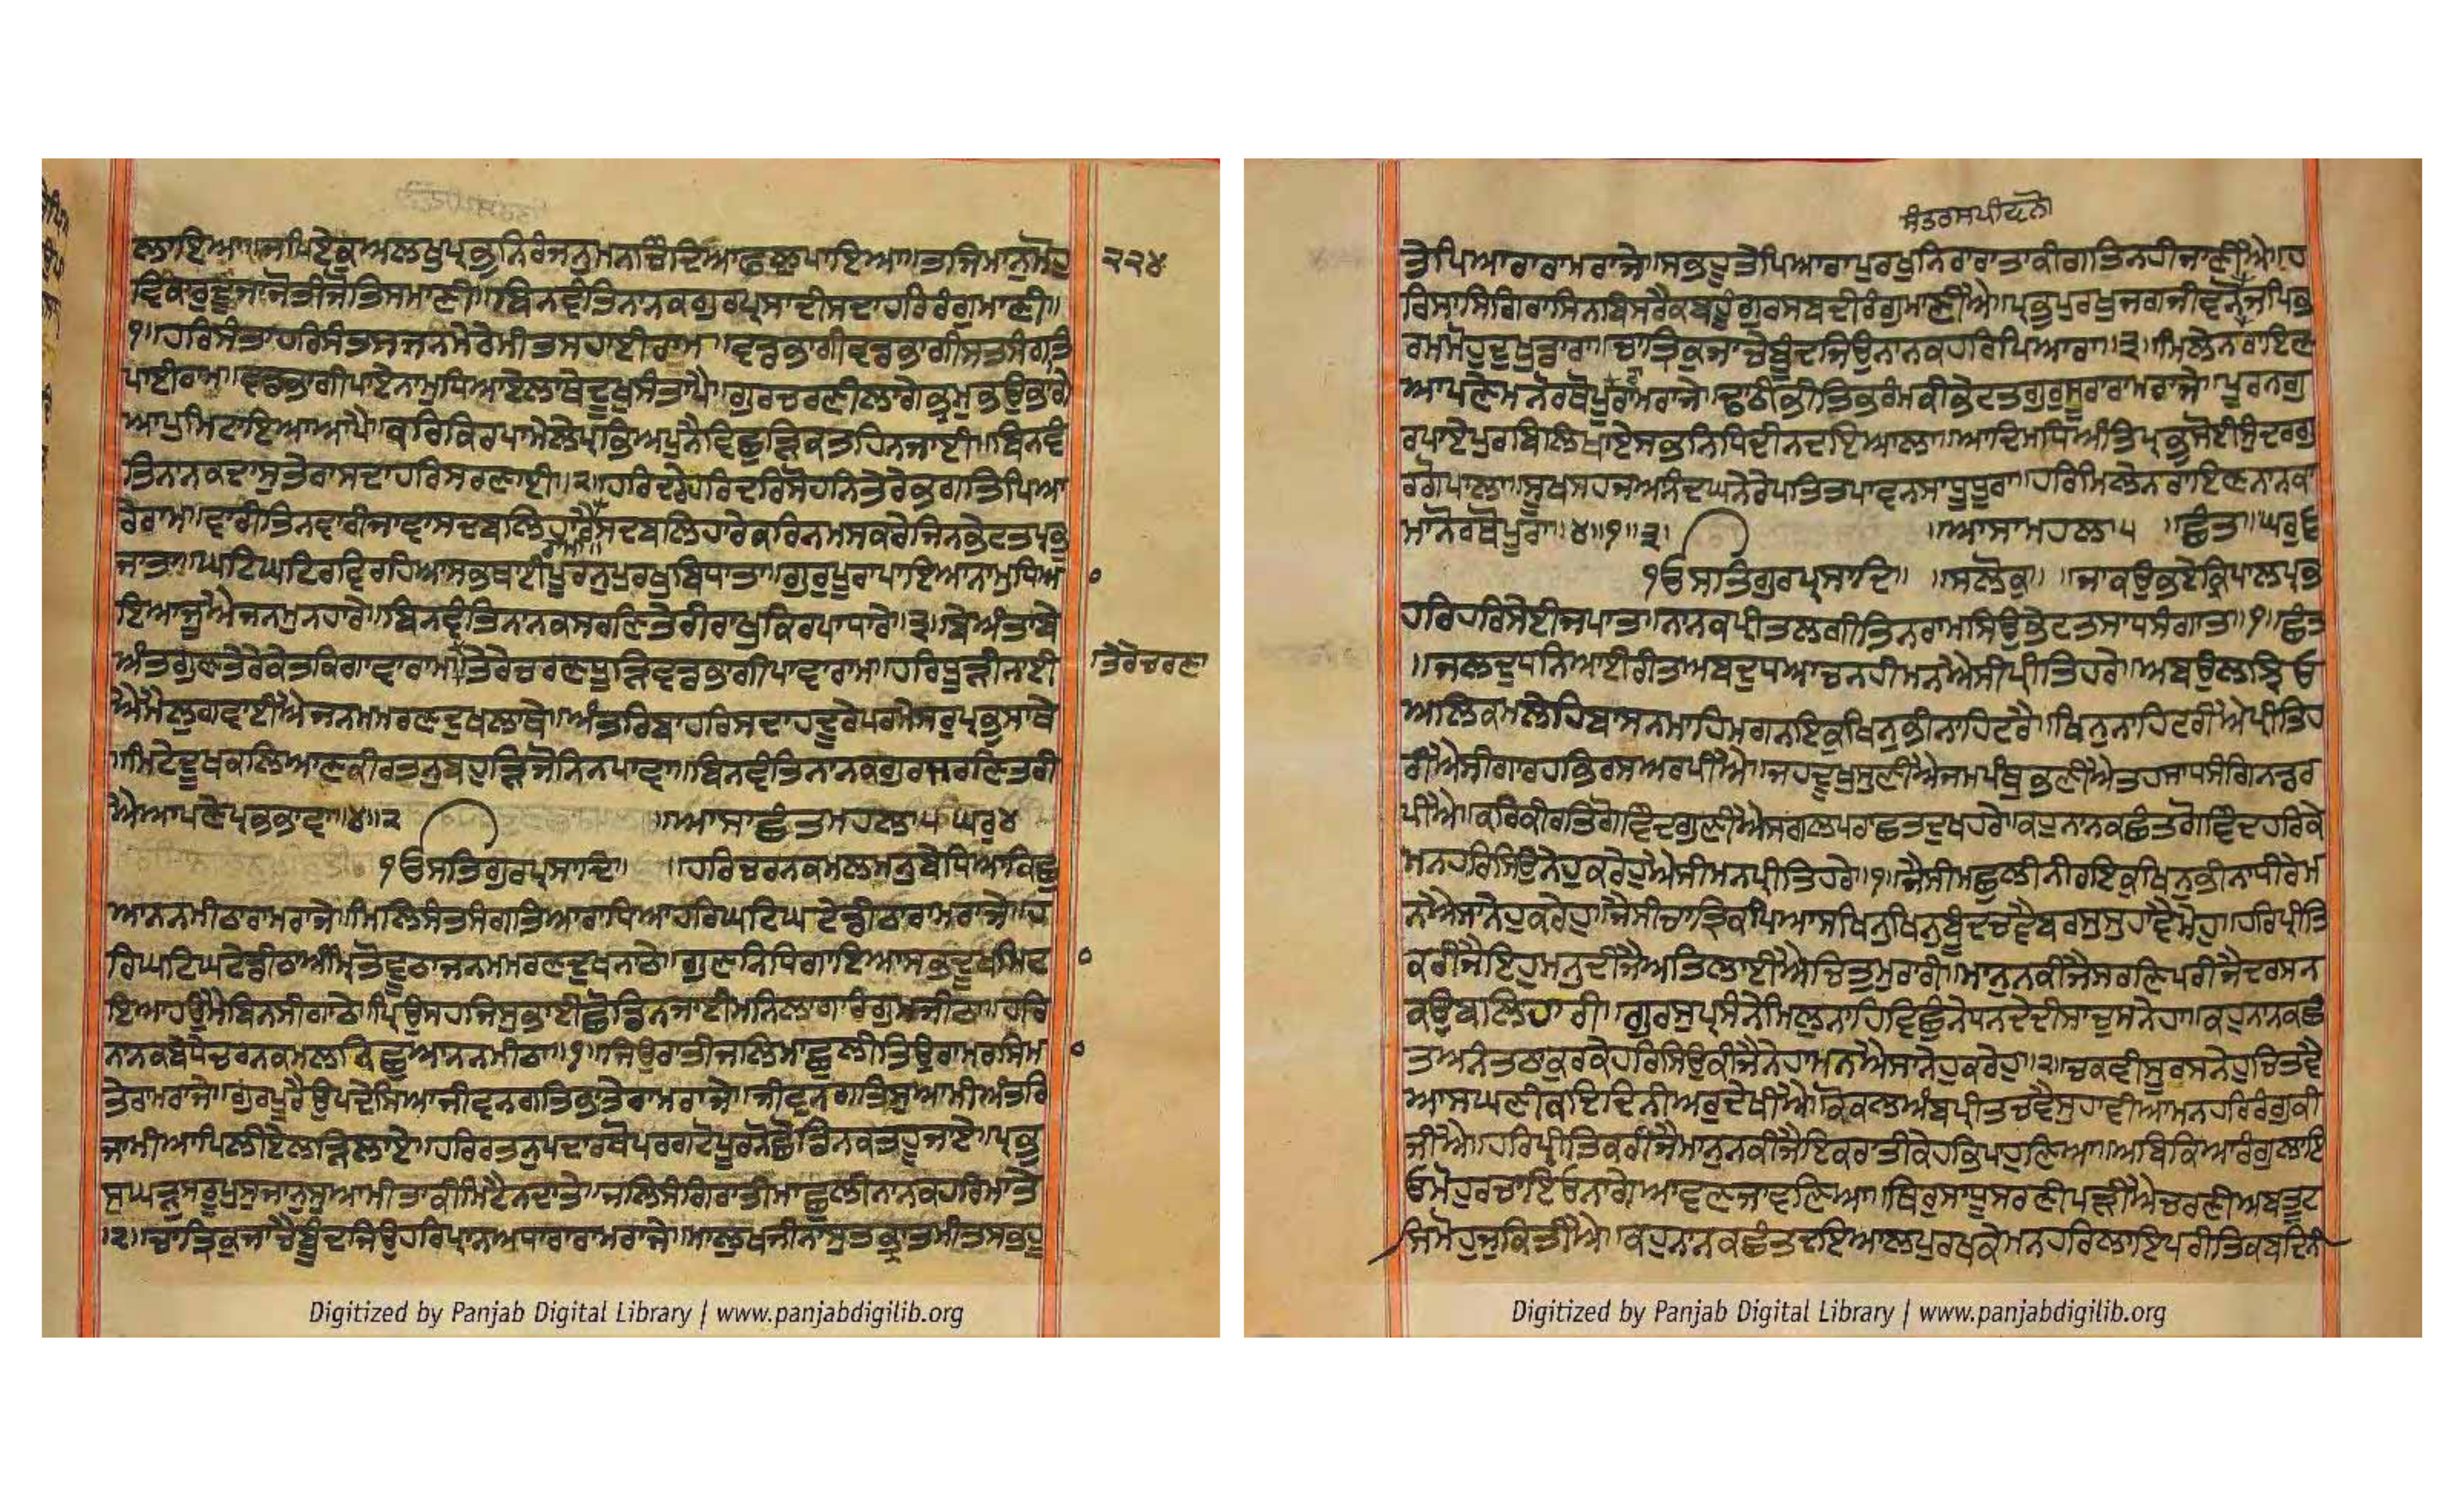 ਲਾਇਆ॥ਜਪਿਏਕੁਅਲਖੁਪ੍ਰਭੁਨਿਰੰਜਨੁਮਨਚਿੰਦਿਆਫਲੁਪਾਇਆ॥ਤਜਿਮਾਨੁਮੋਹੁ
੨੨੪
ਵਿਕਾਰੁਦੂਜਾਜੋਤੀਜੋਤਿਸਮਾਣੀ॥ਬਿਨਵੰਤਿਨਾਨਕਗੁਰਪ੍ਰਸਾਦੀਸਦਾਹਰਿਰੰਗੁਮਾਣੀ॥
੧॥ਹਰਿਸੰਤਾਹਰਿਸੰਤਸਜਨਮੇਰੇਮੀਤਸਹਾਈਰਾਮ॥ਵਡਭਾਗੀਵਡਭਾਗੀਸਤਸੰਗਤਿ
ਪਾਈਰਾਮ॥ਵਡਭਾਗੀਪਾਏਨਾਮੁਧਿਆਏਲਾਥੇਦੂਖਸੰਤਾਪੈ॥ਗੁਰਚਰਣੀਲਾਗੇਭ੍ਰਮਭਉਭਾਗੇ
ਆਪੁਮਿਟਾਇਆਆਪੈ॥ਕਰਿਕਿਰਪਾਮੇਲੇਪ੍ਰਭਿਅਪੁਨੈਵਿਛੁੜਿਕਤਹਿਨਜਾਈ॥ਬਿਨਵੰ
ਤਿਨਾਨਕਦਾਸੁਤੇਰਾਸਦਾਹਰਿਸਰਣਾਈ॥੨॥ਹਰਿਦਰੇਹਰਿਦਰਿਸੋਹਨਿਤੇਰੇਭਗਤਿਪਿਆ
ਰੇਰਾਮ॥ਵਾਰੀਤਿਨਵਾਰੀਜਾਵਾਸਦਬਲਿਹਾਰੈਸਦਬਲਿਹਾਰੇਕਰਿਨਮਸਕਾਰੇਜਿਨਭੇਟਤਪ੍ਰਭੁ
ਜਾਤਾ॥ਘਟਿਘਟਿਰਵਿਰਹਿਆਸਭਥਾਈਪੂਰਨੁਪੁਰਖੁਬਿਧਾਤਾ॥ਗੁਰੁਪੂਰਾਪਾਇਆਨਾਮੁਧਿਆ
ਇਆਜੂਐਜਨਮੁਨਹਾਰੇ॥ਬਿਨਵੰਤਿਨਾਨਕਸਰਣਿਤੇਰੀਰਾਖੁਕਿਰਪਾਧਾਰੇ॥੩॥ਬੇਅੰਤਾਬੇ
ਅੰਤਗੁਣਤੇਰੇਕੇਤਕਿਗਾਵਾਰਾਮ॥ਤੇਰੇਚਰਣਧੂੜਿਵਡਭਾਗੀਪਾਵਾਰਾਮ॥ਹਰਿਧੂੜੀਨਾਈ
ਤੇਰੇਚਰਣਾ
ਐਮੈਲੁਗਵਾਈਐਜਨਮਮਰਣਦੁਖਲਾਥੇ॥ਅੰਤਰਿਬਾਹਰਿਸਦਾਹਦੂਰੇਪਰਮੇਸਰੁਪ੍ਰਭੁਸਾਥੇ
॥ਮਿਟੇਦੂਖਕਲਿਆਣਕੀਰਤਨੁਬਹੁੜਿਜੋਨਿਨਪਾਵਾ॥ਬਿਨਵੰਤਿਨਾਨਕਗੁਰਸਰਣਿਤਰੀ
ਐਆਪਣੇਪ੍ਰਭਭਾਵਾ॥੪॥੨ ॥ਆਸਾਛੰਤਮਹਲਾ੫ਘਰੁ੪
੧ਓਸਤਿਗੁਰਪ੍ਰਸਾਦਿ॥ ॥ਹਰਿਚਰਨਕਮਲਮਨੁਬੇਧਿਆਕਿਛੁ
ਆਨਨਮੀਠਾਰਾਮਰਾਜੇ॥ਮਿਲਿਸੰਤਸੰਗਤਿਆਰਾਧਿਆਹਰਿਘਟਿਘਟੇਡੀਠਾਰਾਮਰਾਜੇ॥ਹ
ਰਿਘਟਿਘਟੇਡੀਠਾਅੰਮ੍ਰਿਤੋਵੂਠਾਜਨਮਮਰਣਦੁਖਨਾਠੇ॥ਗੁਣਨਿਧਿਗਾਇਆਸਭਦੂਖਮਿਟ
ਇਆਹਉਮੈਬਿਨਸੀਗਾਠੇ॥ਪ੍ਰਿਉਸਹਜਿਸੁਭਾਈਛੋਡਿਨਜਾਈਮਨਿਲਾਗਾਰੰਗੁਮਜੀਠਾ॥ਹਰਿ
ਨਾਨਕਬੇਧੇਚਰਨਕਮਲਕਿਛੁਆਨਨਮੀਠਾ॥੧॥ਜਿਉਰਾਤੀਜਲਿਮਾਛੁਲੀਤਿਉਰਾਮਰਸਿਮਾ
ਤੇਰਾਮਰਾਜੇ॥ਗੁਰਪੂਰੈਉਪਦੇਸਿਆਜੀਵਨਗਤਿਭਾਤੇਰਾਮਰਾਜੇ॥ਜੀਵਨਗਤਿਸੁਆਮੀਅੰਤਰਿ
ਜਾਮੀਆਪਿਲੀਏਲੜਿਲਾਏ॥ਹਰਿਰਤਨਪਦਾਰਥੋਪਰਗਟੋਪੂਰਨੋਛੋਡਿਨਕਤਹੂਜਾਏ॥ਪ੍ਰਭੁ
ਸੁਘੜੁਸਰੂਪੁਸੁਜਾਨੁਸੁਆਮੀਤਾਕੀਮਿਟੈਨਦਾਤੇ॥ਜਲਸੰਗਿਰਾਤੀਮਾਛੁਲੀਨਾਨਕਹਰਿਮਾਤੇ
।੨॥ਚਾਤ੍ਰਿਕੁਜਾਚੈਬੂੰਦਜਿਉਹਰਿਪ੍ਰਾਨਅਧਾਰਾਰਾਮਰਾਜੇ॥ਮਾਲੁਖਜੀਨਾਸੁਤਭ੍ਰਾਤਮੀਤਸਭਹੂ
ਸੰਤਰਸਪੀਵਨੋ
ਤੇਪਿਆਰਾਰਾਮਰਾਜੇ॥ਸਭਹੂਤੇਪਿਆਰਾਪੁਰਖੁਨਿਰਾਰਾਤਾਕੀਗਤਿਨਹੀਜਾਣੀਐ॥ਹ
ਰਿਸਾਸਿਗਿਰਾਸਿਨਬਿਸਰੈਕਬਹੂੰਗੁਰਸਬਦੀਰੰਗੁਮਾਣੀਐ॥ਪ੍ਰਭੁਪੁਰਖੁਜਗਜੀਵਨੋਜਪਿਭ
ਰਮਮੋਹਦੁਖਡਾਰਾ॥ਚਾਤ੍ਰਿਕੁਜਾਚੈਬੂੰਦਜਿਉਨਾਨਕਹਰਿਪਿਆਰਾ॥੩॥ਮਿਲੇਨਰਾਇਣ
ਆਪਣੇਮਨੋਰਥੋਪੂਰਾਰਾਮਰਾਜੇ॥ਢਾਠੀਭੀਤਿਭਰੰਮਕੀਭੇਟਤਗੁਰੁਸੂਰਾਰਾਮਰਾਜੇ॥ਪੂਰਨਗੁ
ਰਪਾਏਪੁਰਬਿਲਿਖਾਏਸਭਨਿਧਿਦੀਨਦਇਆਲਾ॥ਆਦਿਮਧਿਅੰਤਿਪ੍ਰਭੁਸੋਈਸੁੰਦਰਗੁ
ਰਗੋਪਾਲਾ॥ਸੂਖਸਹਜਆਨੰਦਘਨੇਰੇਪਤਿਤਪਾਵਨਸਾਧੂਧੂਰਾ॥ਹਰਿਮਿਲੇਨਰਾਇਣਨਾਨਕਾ
ਮਾਨੋਰਥੋਪੂਰਾ॥੪॥੧॥੩। ॥ਆਸਾਮਹਲਾ੫ ॥ਛੰਤ॥ਘਰੁ੬
੧ਓਸਤਿਗੁਰਪ੍ਰਸਾਦਿ॥ ॥ਸਲੋਕੁ॥ ॥ਜਾਕਉਭਏਕ੍ਰਿਪਾਲਪ੍ਰਭ
ਹਰਿਹਰਿਸੇਈਜਪਾਤ॥ਨਾਨਕਪ੍ਰੀਤਿਲਗੀਤਿਨਰਾਮਸਿਉਭੇਟਤਸਾਧਸੰਗਾਤ॥੧॥ਛੰਤ
॥ਜਲਦੁਧਨਿਆਈਰੀਤਿਅਬਦੁਧਆਚਨਹੀਮਨਐਸੀਪ੍ਰੀਤਿਹਰੇ॥ਅਬਉਰਝਿਓ
ਅਲਿਕਮਲੇਹਿਬਾਸਨਮਾਹਿਮਗਨਇਕੁਖਿਨੁਭੀਨਾਹਿਟਰੈ॥ਖਿਨੁਨਾਹਿਟਰੀਐਪ੍ਰੀਤਿਹ
ਰੀਐਸੀਗਾਰਹਭਿਰਸਅਰਪੀਐ॥ਜਹਦੂਖੁਸੁਣੀਐਜਮਪੰਥੁਭਣੀਐਤਹਸਾਧਸੰਗਿਨਡਰ
ਪੀਐ॥ਕਰਿਕੀਰਤਿਗੋਵਿੰਦਗੁਣੀਐਸਗਲਪਰਾਛਤਦੁਖਹਰੇ॥ਕਹੁਨਾਨਕਛੰਤਗੋਵਿੰਦਹਰਿਕੇ
ਮਨਹਰਿਸਿਉਨੇਹੁਕਰੇਹੁਐਸੀਮਨਪ੍ਰੀਤਿਹਰੇ॥੧॥ਜੈਸੀਮਛੁਲੀਨੀਰਇਕੁਖਿਨੁਭੀਨਾਧੀਰੇਮ
ਨਐਸਾਨੇਹੁਕਰੇਹੁ॥ਜੈਸੀਚਾਤ੍ਰਿਕਪਿਆਸਖਿਨੁਖਿਨੁਬੂੰਦਚਵੈਬਰਸੁਸੁਹਾਵੈਮੇਹੁ॥ਹਰਿਪ੍ਰੀਤਿ
ਕਰੀਜੈਇਹੁਮਨੁਦੀਜੈਅਤਿਲਾਈਐਚਿਤੁਮੁਰਾਰੀ॥ਮਾਨੁਨਕੀਜੈਸਰਣਿਪਰੀਜੈਦਰਸਨ
ਕਉਬਲਿਹਾਰੀ॥ਗੁਰਸੁਪ੍ਰਸੰਨੇਮਿਲੁਨਾਹਵਿਛੁੰਨੇਧਨਦੇਦੀਸਾਚੁਸਨੇਹਾ॥ਕਹੁਨਾਨਕਛੰ
ਤਅਨੰਤਠਾਕੁਰਕੇਹਰਿਸਿਉਕੀਜੈਨੇਹਾਮਨਐਸਾਨੇਹੁਕਰੇਹੁ॥੨॥ਚਕਵੀਸੂਰਸਨੇਹੁਚਿਤਵੈ
ਆਸਘਣੀਕਇਦਿਨੀਅਰੁਦੇਖੀਐ॥ਕੋਕਿਲਅੰਬਪ੍ਰੀਤਿਚਵੈਸੁਹਾਵੀਆਮਨਹਰਿਰੰਗੁਕੀ
ਜੀਐ॥ਹਰਿਪ੍ਰੀਤਿਕਰੀਜੈਮਾਨੁਨਕੀਜੈਇਕਰਾਤੀਕੇਹਭਿਪਾਹੁਣਿਆ॥ਅਬਕਿਆਰੰਗੁਲਾਇ
ਓਮੋਹੁਰਚਾਇਓਨਾਗੇਆਵਣਜਾਵਣਿਆ॥ਥਿਰੁਸਾਧੂਸਰਣੀਪੜੀਐਚਰਣੀਅਬਟੂਟ
ਸਿਮੋਹੁਜੁਕਿਤੀਐ॥ਕਹੁਨਾਨਕਛੰਤਦਇਆਲਪੁਰਖਕੇਮਨਹਰਿਲਾਇਪਰੀਤਿਕਬਦਿਨੀ
Digitized by Panjab Digital Library | www.panjabdigilib.org
Digitized by Panjab Digital Library | www.panjabdigilib.org